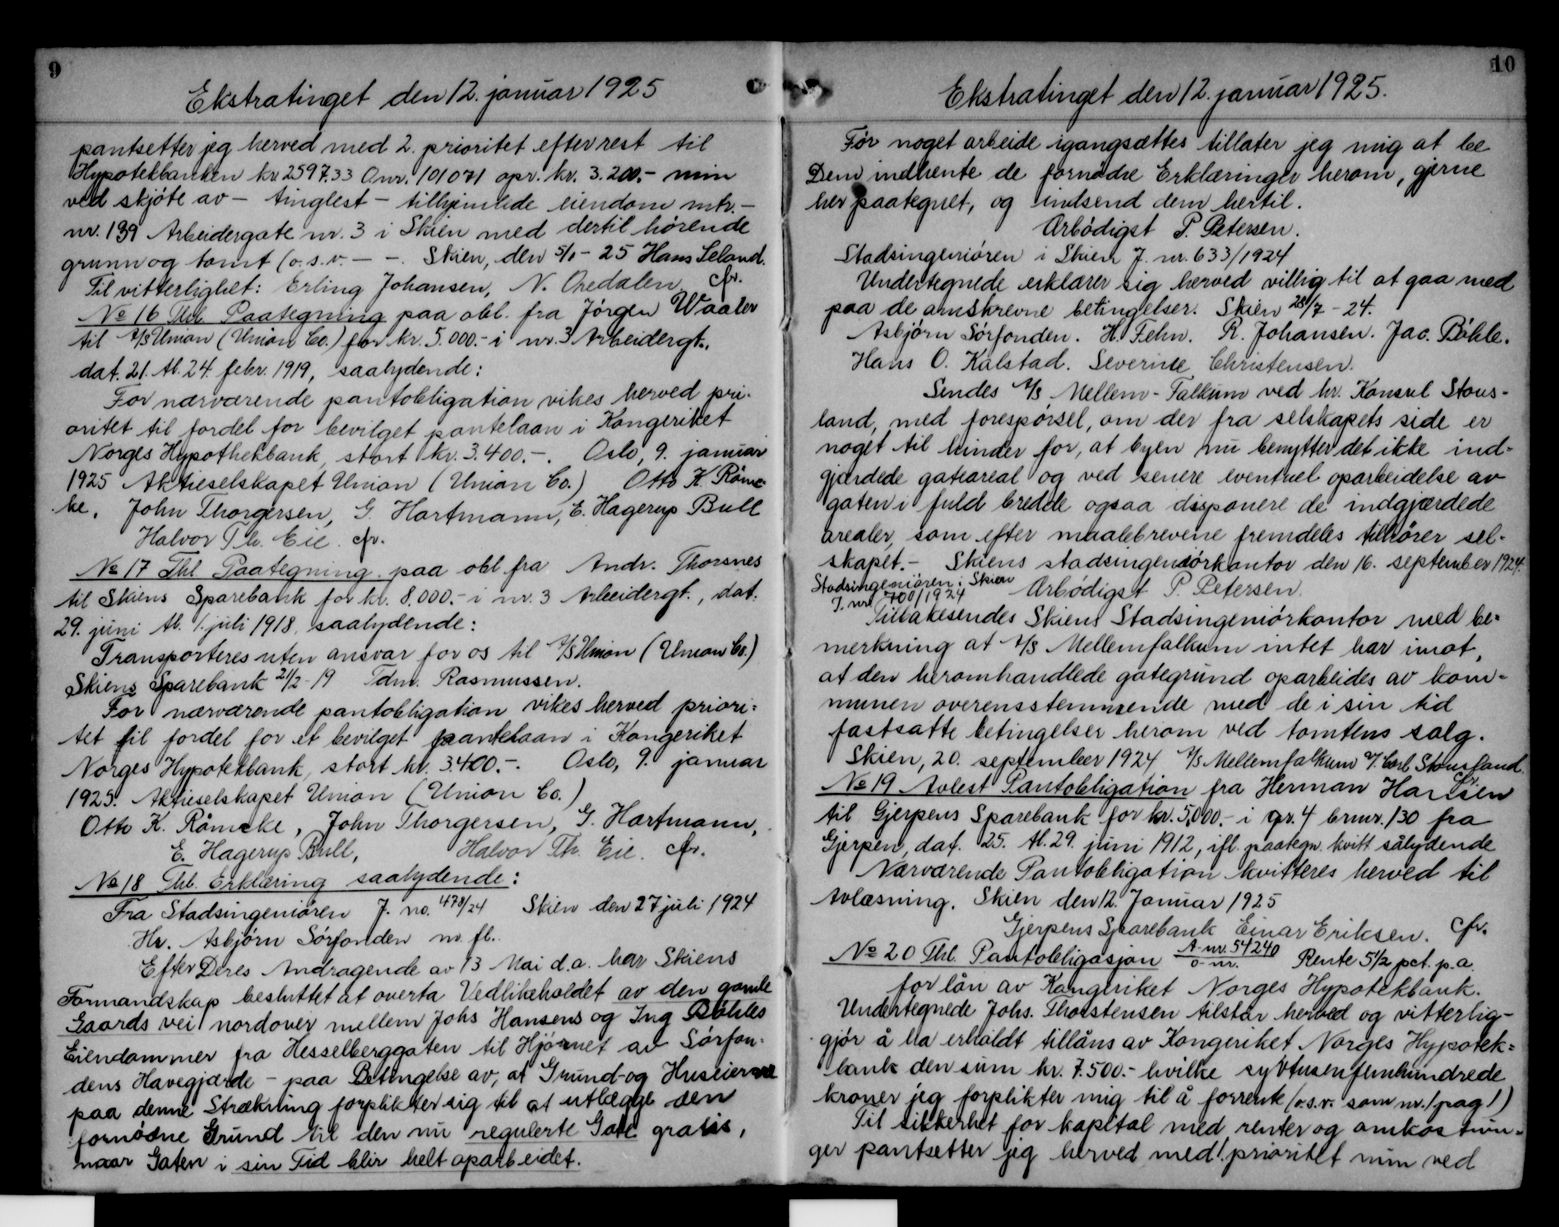 9
Ekstratinget den 12. januar 1925
pantsetter jeg herved med 2. prioritet efter rest til
Hypotekbanken kr 2597.33 Onr. 101071 opr. kr. 3.200.- min
ved skjøte av - tinglest - tilhjemlede eiendom mtr.-
nr. 139 Arbeidergate nr. 3 i Skien med dertil hørende
grunn og tomt (o.s.v. - -. Skien, den 5/1 - 25 Hans Seland.
Til vitterlighet: Erling Johansen, N. Ohedalen cfr.
No 16 Thl. Paategning paa obl. fra Jørgen Waaler
til A/S Union (Union Co.) for kr. 5.000.- i nr. 3 Arbeidergt.
dat. 21. tl. 24. febr. 1919, saalydende:
For nærværende pantobligation vikes herved pri-
oritet til fordel for bevilget pantelaan i Kongeriket
Norges Hypothekbank, stort kr. 3.400.-. Oslo, 9. januar
1925 Aktieselskapet Union (Union Co.) Otto K Röme-
ke, John Thorgersen, G. Hartmann, E. Hagerup Bull
Halvor Th. Eie. cfr.
No 17 Thl Paategning paa obl. fra Andr. Thorsnes
til Skiens Sparebank for kr. 8.000.- i nr. 3 Arbeidergt., dat.
29. juni tl. 1. juli 1918, saalydende:
Transporteres uten ansvar for os til A/S Union (Union Co.)
Skiens Sparebank 21/2 - 19 Edm. Rasmussen.
For nærværende pantobligation vikes herved priori-
tet til fordel for et bevilget pantelaan i Kongeriket
Norges Hypotekbank, stort kr. 3.400.-. Oslo, 9. januar
1925. Aktieselskapet Union (Union Co.)
Otto K. Römcke, John Thorgersen, G. Hartmann,
E. Hagerup Bull, Halvor Th. Eie. cfr.
No 18 Thl. Erklæring saalydende:
Fra Stadsingeniøren J. no. 478/24 Skien den 27 juli 1924
Hr. Asbjørn Sörfonden m. fl.
Efter Deres Andragende av 13 Mai d.a. har Skiens
Formandskap besluttet at overta Vedlikeholdet av den gamle
Gaards vei nordover mellem Johs Hansens og Ing Böhles
Eiendommer fra Hesselberggaten til Hjørnet av Sörfon-
dens Havegjærde - paa Betingelse av, at Grund- og Huseierne
paa denne Strækning forplikter sig til at utlægge den
fornödne Grund til den nu regulerte Gate gratis,
naar Gaten i sin Tid blir helt oparbeidet.
10
Ekstratinget den 12. januar 1925.
Før noget arbeide igangsættes tillater jeg mig at be
Dem indhente de fornødne Erklæringer herom, gjerne
her paategnet, og indsend dem hertil.
Ærbödigst P. Petersen.
Stadsingeniören i Skien J. nr. 633/1924
Undertegnede erklærer sig herved villig til at gaa med
paa de omskrevne betingelser. Skien 28/7 - 24.
Asbjørn Sørfonden. H. Fehn. R. Johansen. Jac. Böhle.
Hans O. Kalstad. Severine Christensen.
Sendes A/S Mellem-Falkum ved hr. Konsul Stous-
land, med forespørsel, om der fra selskapets side er
noget til hinder for, at byen nu benytter det ikke ind-
gjærdede gateareal og ved senere eventuel oparbeidelse av
gaten i fuld bredde ogsaa disponere de indgjærdede
arealer, som efter maalebrevene fremdeles tilhører sel-
skapet.- Skiens stadsingeniørkontor den 16. september 1924.
Stadsingeniøren i Skien Ærbödigst P. Petersen.
J. nr. 700/1924
Tilbakesendes Skiens Stadsingeniørkontor med be-
merkning at A/S Mellemfalkum intet har imot,
at den heromhandlede gategrund oparbeides av kom-
munen overensstemmende med de i sin tid
fastsatte betingelser herom ved tomtens salg.
Skien, 20. september 1924 A/S Mellemfalkum v/ Carl Stousland.
cfr.
No 19 Avlest Pantobligation fra Herman Hansen
til Gjerpens Sparebank for kr. 5,000.- i gr. 4 brnr. 130 fra
Gjerpen, dat. 25. tl. 29. juni 1912, ifl. paategn. kvitt sålydende
Nærværende Pantobligation kvitteres herved til
Avlæsning. Skien den 12. Januar 1925
Gjerpens Sparebank Einar Eriksen. cfr.
No 20 Thl. Pantobligasjon A-nr. 54240 Rente 5 1/2 pct. p.a.
o-nr.
for lån av Kongeriket Norges Hypotekbank.
Undertegnede Johs. Thorstensen tilstår herved og vitterlig-
gjör å ha erholdt tillåns av Kongeriket Norges Hypotek-
bank den sum kr. 7.500.- hvilke syvtusenfemhundrede
kroner jeg forplikter mig til å forrente (o.s.v. som nr. 1 pag 1)
Til sikkerhet for kapital med renter og omkostnin-
ger pantsetter jeg herved med 1. prioritet min ved